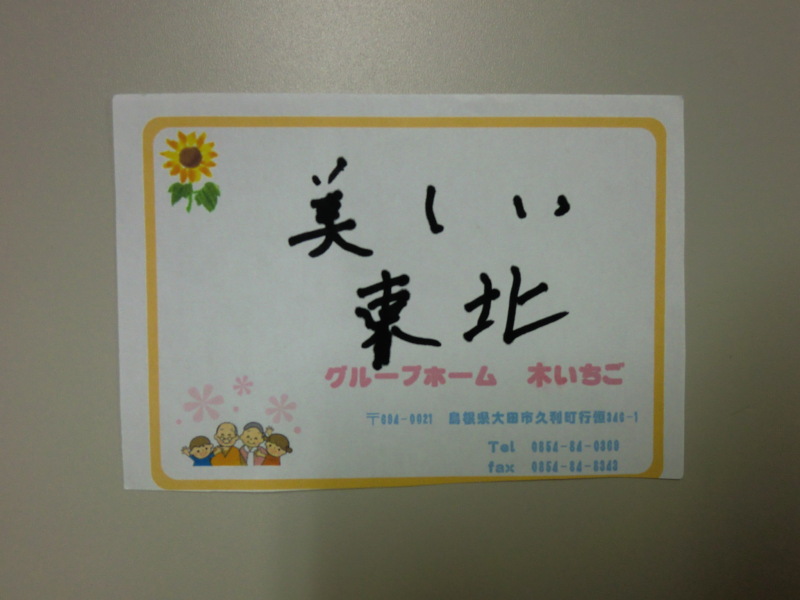 美しい
東北
グループホーム 木いちご
〒694-0021 島根県大田市久利町行恒346-1
Tel 0854-84-0369
fax 0854-84-8343